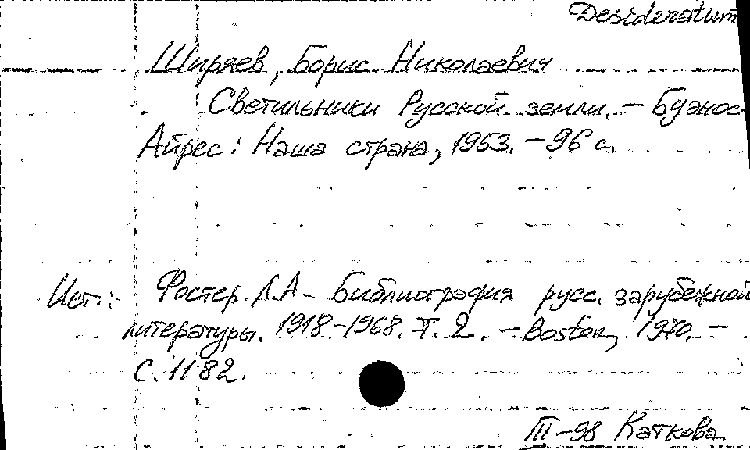 Desideratum
Ширяев, Борис Николаевич
Светильники Русской земли. – Буэнос-
Айрес: Наша страна, 1953. – 96 с.
Ист.: Фостер Л.А – Библиография русс. зарубежной
литературы. 1918–1968. Т. 2. – Boston, 1970. –
С. 1182.
III–98 Каткова